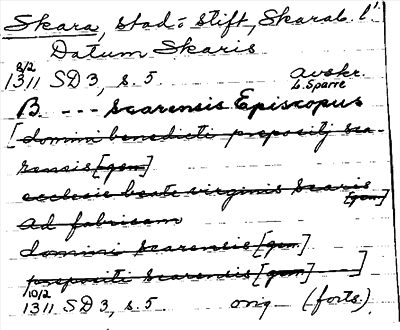 Skara, stad o. Stift, Skarab. l.
Datum Skaris
8/2
1311 SD 3, s. 5 Avskr.
L. Sparre
B --- Scarensis Episcopus
[domini benedicti prepositj sca-
rensis [gen]
ecclesie beate virginis Scaris
[gen]
ad fabricam
domini Scarensis [gen]
prepositi Scarensis [gen] ]
10/2
1311 SD 3, s. 5 orig — (forts.)